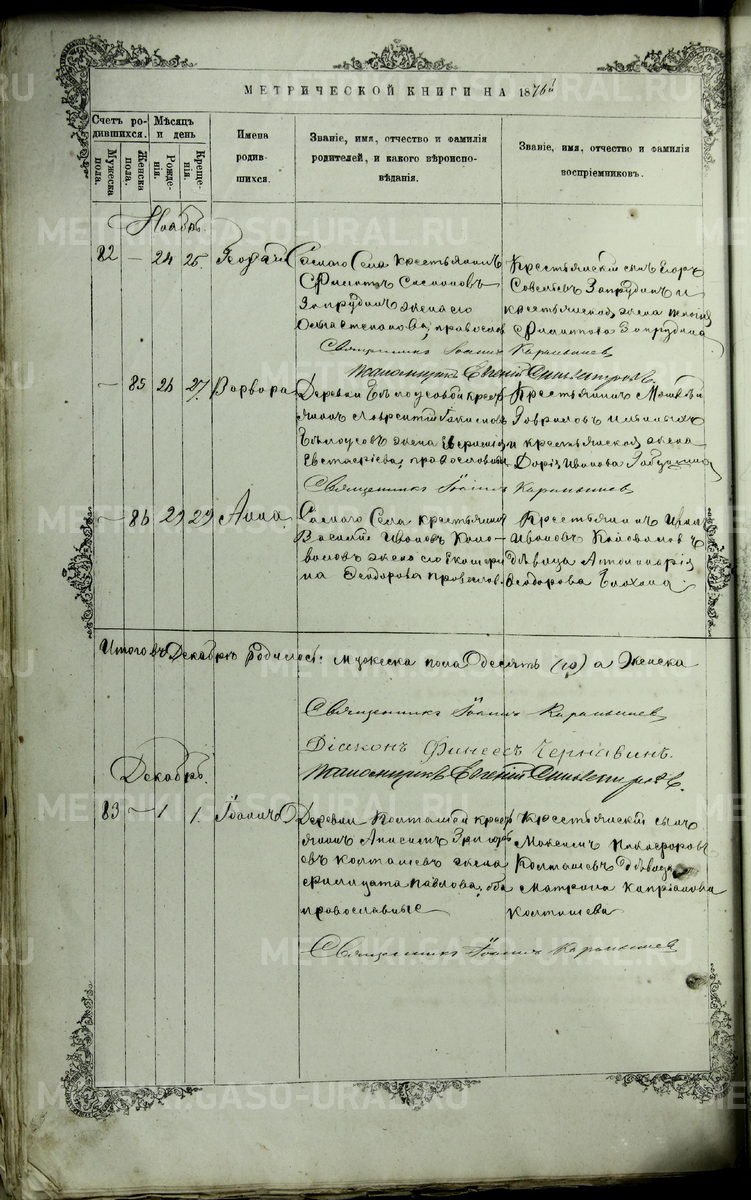 МЕТРИЧЕСКОЙ КНИГИ НА 1876й
Счетъ родившихся.
Мужеска пола.
Женска пола.
Мѣсяцъ и день
Рожденія.
Крещенія.
Имена
родив-
шихся.
Званіе, имя, отчество и фамилія
родителей, и какого вѣроиспо-
вѣданія.
Званіе, имя, отчество и фамилія
воспріемниковъ.
Ноябрь.
82 — 24 25.
Самаго Села крестьянинъ
Филиппъ
Запрудинъ жена его
Ольга Степанова, православ
Крестьянскій сынъ Егоръ
Савельевъ Запрудинъ и
крестьянская жена
Филиппова Запрудина
Священникъ Іоаннъ Карамышев
Псаломщикъ Евгеній
— 85 26 27. Варвара
Деревни Бѣлоусовой крест
янинъ Лаврентій
Бѣлоусовъ жена
православныи
Крестьянинъ Матвѣй
Гавриловъ
и крестьянская жена
Дарія Иванова
Священникъ Іоаннъ Карамышев
— 86 29 29 Анна.
Самаго Села крестьянинъ
Василій Ивановъ Коно-
валовъ жена его Екатери
на Феодорова православ.
Крестьянинъ Иванъ
Ивановъ Коновалов ъ
дѣвица
Феодорова
Итого въ Декабрѣ родилось: мужеска пола десять (10) а женска
Священникъ Іоаннъ Карамышев
Діаконъ Финеесъ Чернавинъ.
Псаломщикъ Евгеній
Декабрь.
83 — 1 1. Іоаннъ
Деревни Колташей крест
янинъ Анисимъ Григорь
евъ Колташевъ жена
Филицата Павлова, оба
православные
Крестьянскій сынъ
Максимъ Никифоровъ
Колташевъ дѣвица
Матрона Кипріанова
Колташева
Священникъ Іоаннъ Карамышев
METRIKI.GASO-URAL.RU